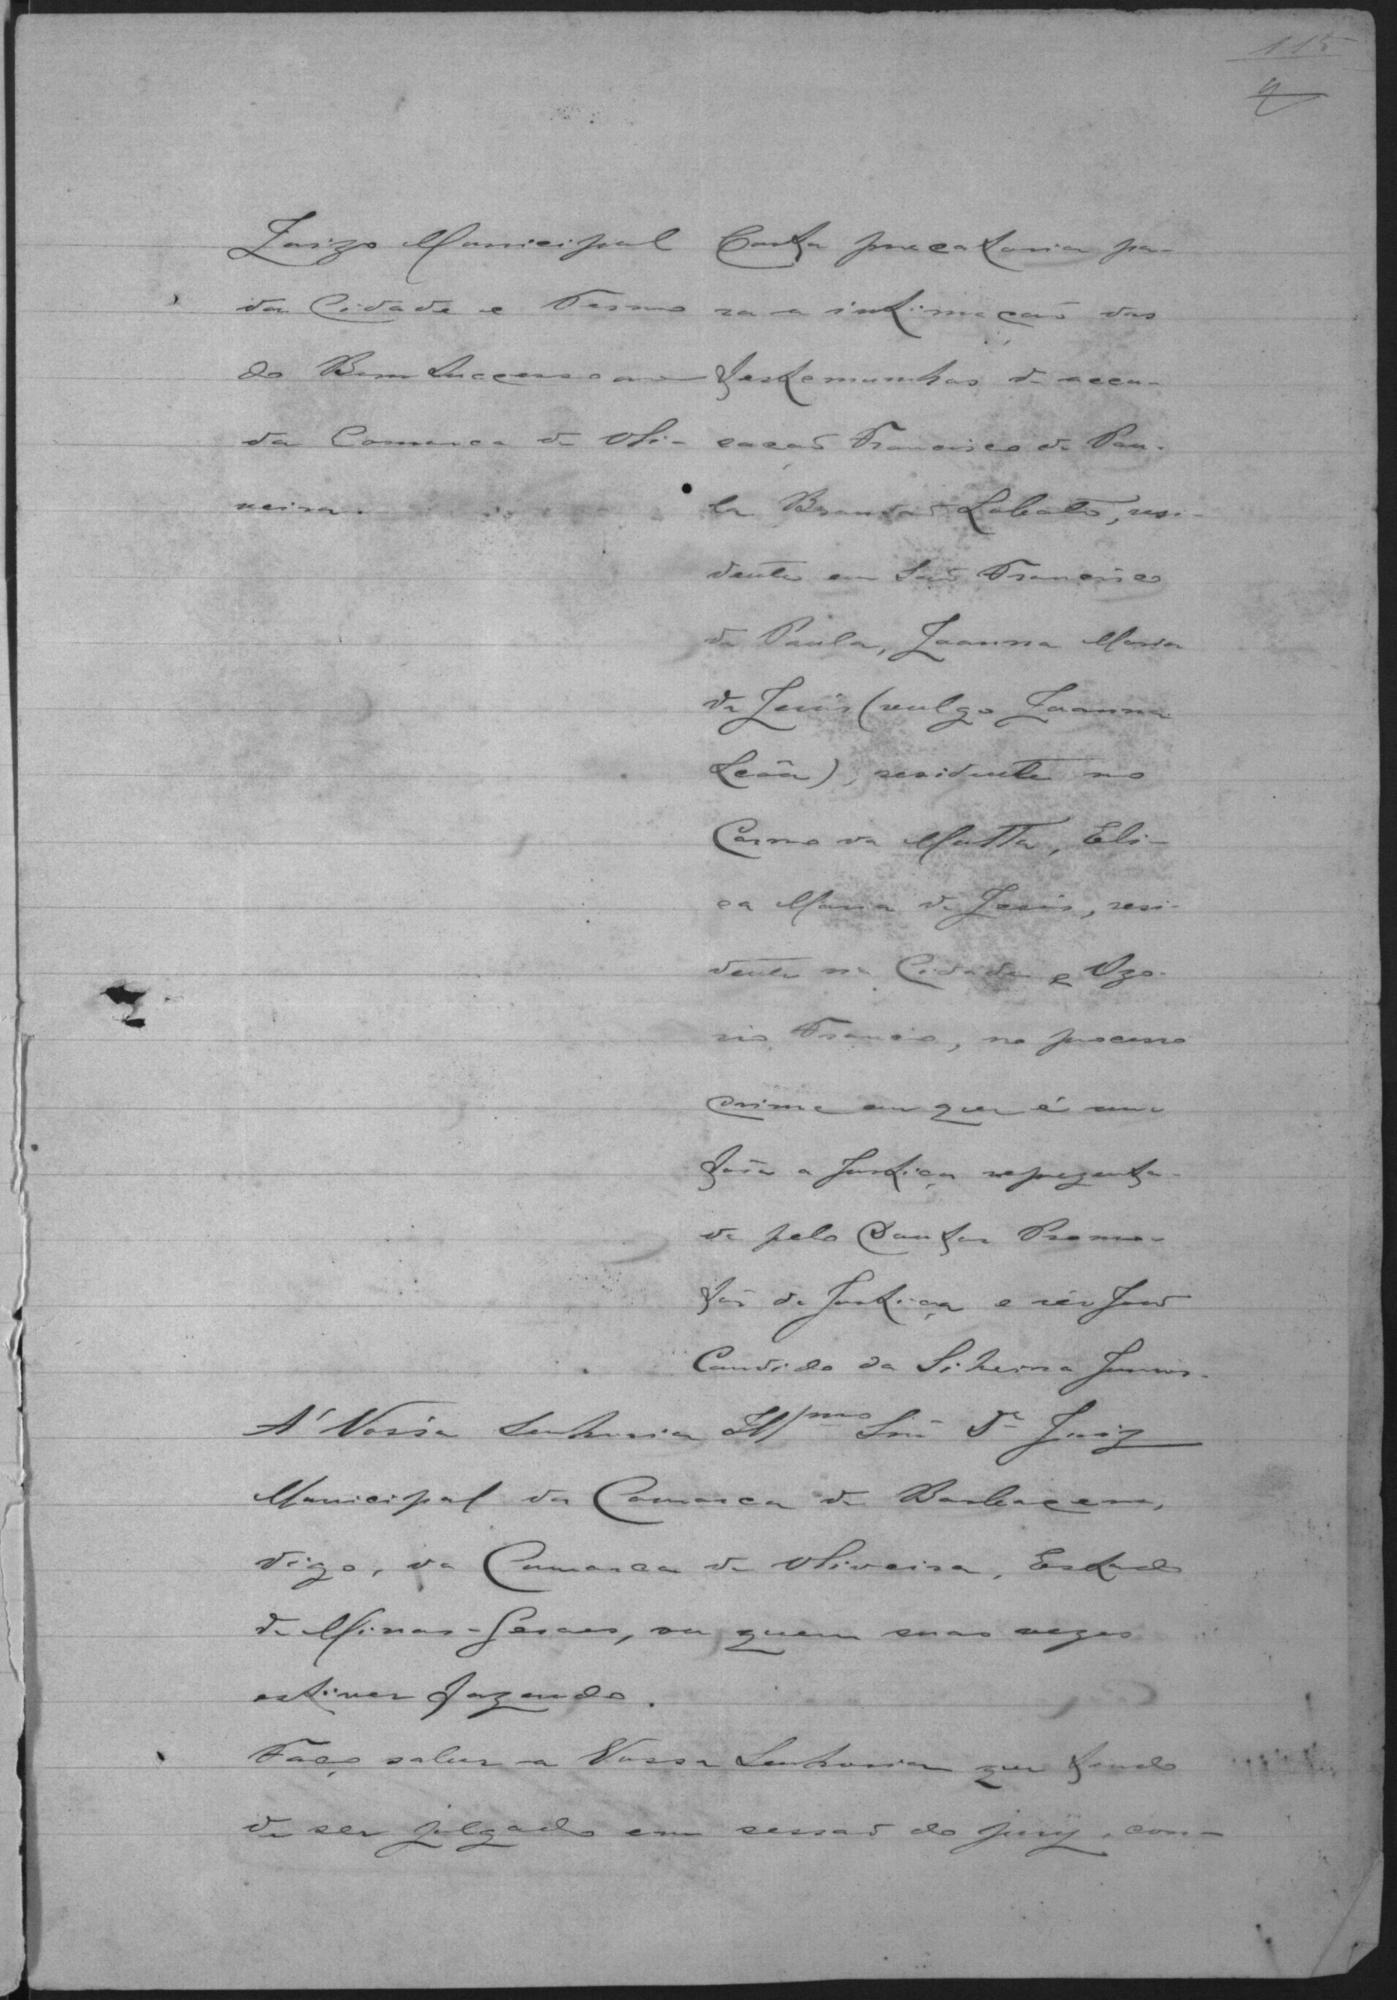 115
Juizo Municipal
da Cidade e Termo
do Bom Successo
da Comarca de Oli-
veira.
Carta precatoria pa-
ra a intimação das
testemunhas de accu-
sação Francisco de Pau-
la Brandão Lobato, resi-
dente em São Francisco
de Paula, Joanna Maria
de Jesús (vulgo Joanna
Leôa), residente no
Carmo da Matta, Eli-
sa Maria de Jesús, resi-
dente na Cidade e Ozo-
rio Francio, no processo
crime em que é au-
tôra a Justiça reprezenta-
da pelo Doutor Promo-
tor de Justiça e réo José
Candido da Silveira Junior.
A' Vossa Senhoria Illmo Snr Dr Juiz
Municipal da Comarca de Barbacena,
digo, da Comarca de Oliveira, Estado
de Minas-Geraes, ou quem suas vezes
estiver fazendo.
Faço saber a Vossa Senhoria que tendo
de ser julgado em sessão do jury, con-